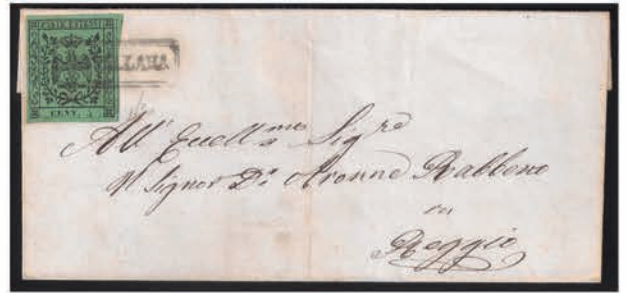 POSTE ESTENSI
CENT. 5
LLARA
All' Eccell.mo Sig.re
Il Signor D.r Aronne Rabbeno
in
Reggio